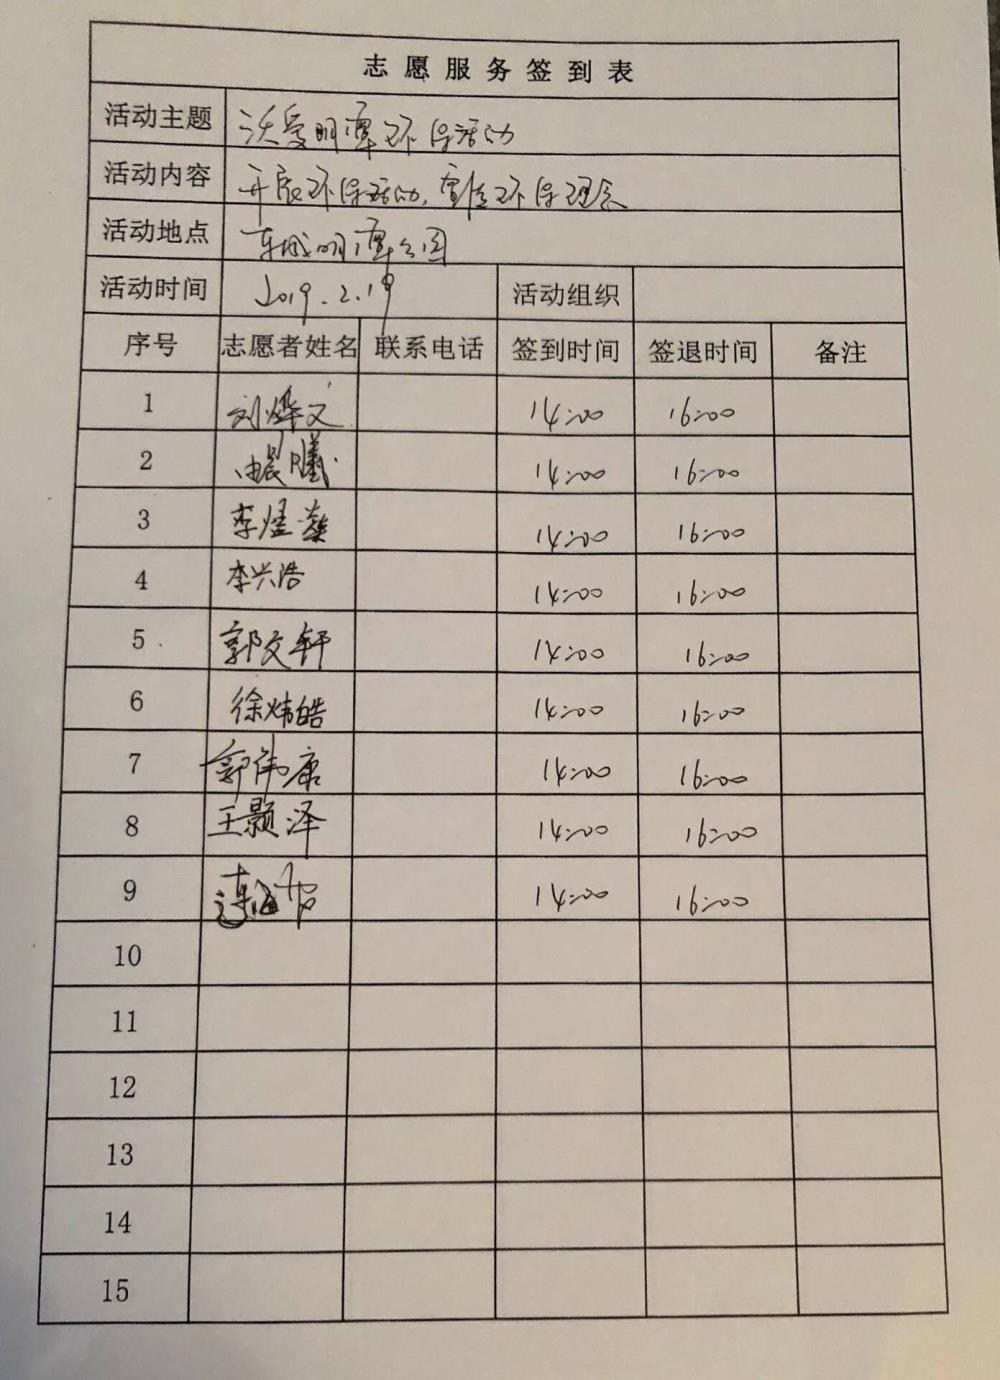 志愿服务签到表
活动主题 沃爱明潭环保活动
活动内容 开展环保活动,宣传环保理念
活动地点 东城明潭公园
活动时间 2019.2.19 活动组织
序号 志愿者姓名 联系电话 签到时间 签退时间 备注
1 刘烨文 14:00 16:00
2 晨曦 14:00 16:00
3 李煜燊 14:00 16:00
4 李兴浩 14:00 16:00
5 郭文轩 14:00 16:00
6 徐炜皓 14:00 16:00
7 郭伟康 14:00 16:00
8 王颢泽 14:00 16:00
9 14:00 16:00
10
11
12
13
14
15